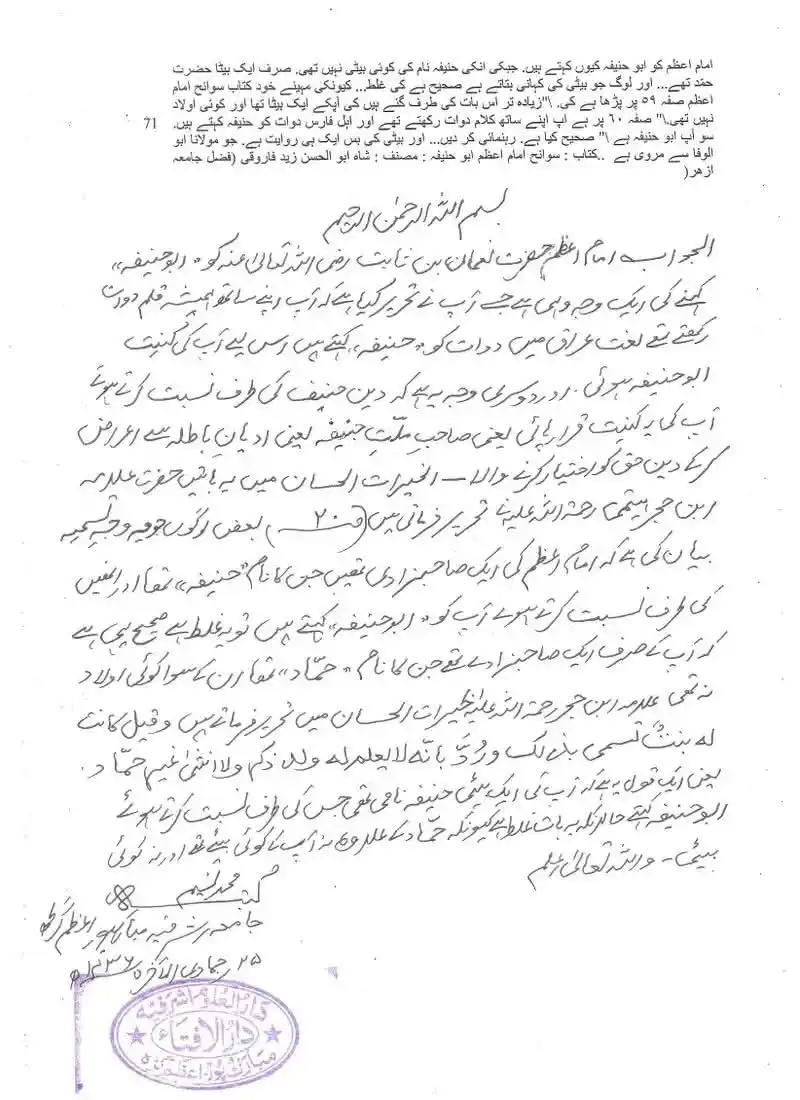 امام اعظم کو ابو حنیفہ کیوں کہتے ہیں. جبکی انکی حنیفہ نام کی کوئی بیٹی نہیں تھی. صرف ایک بیٹا حضرت
حمّد تھے... اور لوگ جو بیٹی کی کہانی بتاتے ہے صحیح ہے کی غلط... کیونکی مہینے خود کتاب سوانح امام
اعظم صفہ ٥٩ پر پڑھا ہے کی. \"زیادہ تر اس بات کی طرف گئے ہیں کی آپکے ایک بیٹا تھا اور کوئی اولاد
نہیں تھی.\" صفہ ٦٠ پر ہے اپ اپنے ساتھ کلام دوات رکھتے تھے اور اہل فارس دوات کو حنیفہ کہتے ہیں.
71
سو آپ ابو حنیفہ ہے \" صحیح کیا ہے. رہنمائی کر دیں... اور بیٹی کی بس ایک ہی روایت ہے. جو مولانا ابو
الوفا سے مروی ہے ..کتاب : سوانح امام اعظم ابو حنیفہ : مصنف : شاہ ابو الحسن زید فاروقی (فضل جامعہ
ازھر(
بسم اللہ الرحمٰن الرحیم
الجواب امام اعظم حضرت نعمان بن ثابت رضی اللہ تعالیٰ عنہ کو "ابو حنیفہ"
کہنے کی ایک وجہ وہی ہے جسے آپ نے تحریر کیا ہے کہ آپ اپنے ساتھ ہمیشہ قلم دوات
رکھتے تھے لغت عراق میں دوات کو "حنیفہ" کہتے ہیں اس لیے آپ کی کنیت
ابو حنیفہ ہوئی. اور دوسری وجہ یہ ہے کہ دین حنیف کی طرف نسبت کرتے ہوئے
آپ کی یہ کنیت قرار پائی یعنی صاحب ملّتِ حنیفہ یعنی ادیانِ باطلہ سے اعراض
کرکے دین حق کو اختیار کرنے والا — الخیرات الحسان میں یہ باتیں حضرت علامہ
ابن حجر ہیتمی رحمۃ اللہ علیہ نے تحریر فرمائی ہیں (ص ٢٠) بعض لوگوں جو یہ وجہ تسمیہ
بیان کی ہے کہ امام اعظم کی ایک صاحبزادی تھیں جن کا نام "حنیفہ" تھا اور انھیں
کی طرف نسبت کرتے ہوئے آپ کو "ابو حنیفہ" کہتے ہیں تو یہ غلط ہے صحیح یہی ہے
کہ آپ کے صرف ایک صاحبزادے تھے جن کا نام "حمّاد" تھا ان کے سوا کوئی اولاد
نہ تھی علامہ ابن حجر رحمۃ اللہ علیہ خیرات الحسان میں تحریر فرماتے ہیں وقیل کانت
لہ بنتٌ تسمی بذلک ورُدَّ بانّہ لا یعلم لہ ولد ذکر ولا انثیٰ غیر حمّاد.
یعنی ایک قول یہ ہے کہ آپ کی ایک بیٹی حنیفہ نامی تھی جس کی طرف نسبت کرتے ہوئے
ابو حنیفہ کہتے حالانکہ یہ بات غلط ہے کیونکہ حمّاد کے علاوہ نہ آپ کا کوئی بیٹے تھے اور نہ کوئی
بیٹی - واللہ تعالیٰ اعلم
محمد نسیم
کتبہ
جامعہ اشرفیہ مبارکپور اعظم گڑھ
٢٥ جمادی الآخرہ ١٤٣٦ھ
دار العلوم اشرفیہ
دار الافتاء
مبارک پور اعظم گڑھ